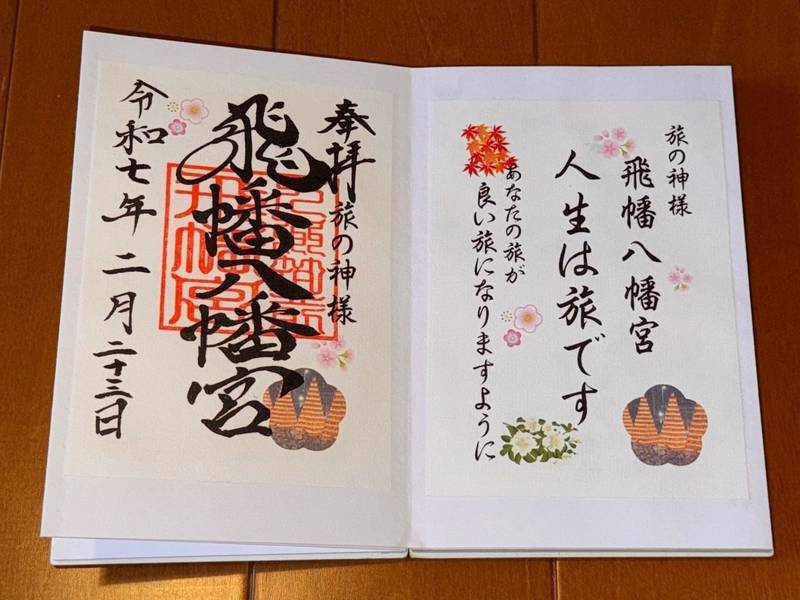 旅の神様
飛幡八幡宮
人生は旅です
あなたの旅が
良い旅になりますように
奉拝
旅の神様
飛幡八幡宮
令和七年二月二十三日